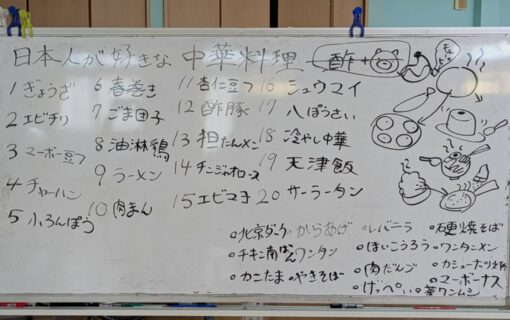 日本人が好きな 中華料理 酢+
1 ぎょうざ
2 エビチリ
3 マーボー豆フ
4 チャーハン
5 ふろんぽう
6 春巻き
7 ごま団子
8 油淋鶏
9 ラーメン
10 肉まん
11 杏仁豆フ
12 酢豚
13 担たんメン
14 チンジャオロース
15 エビマヨ
16 シュウマイ
17 八ぽうさい
18 冷やし中華
19 天津飯
20 サーラータン
北京ダーク からあげ レバニラ 硬焼そば
チキン南ばん ワンタン ほいこうろう ワンタンメン
カニたま やきそば 肉だんご カシューナッツ炒め
げっぺい マーボーナス
茶ワンムシ